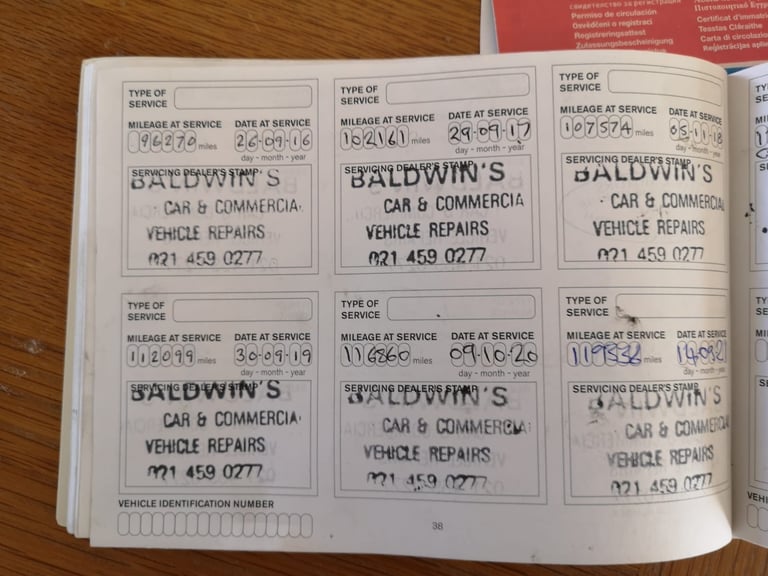 свидетелство за регистрация
Permiso de circulación
Osvědčení o registraci
Registreringsattest
Zulassungsbescheinigung
Certificat d'immatri
Teastas Cláraithe
Carta di circolazio
Reģistrācijas aplie
TYPE OF
SERVICE
MILEAGE AT SERVICE DATE AT SERVICE
96270 miles 26-09-16
day - month - year
SERVICING DEALER'S STAMP
BALDWIN'S
CAR & COMMERCIA
VEHICLE REPAIRS
021 459 0277
TYPE OF
SERVICE
MILEAGE AT SERVICE DATE AT SERVICE
102161 miles 29-09-17
day - month - year
SERVICING DEALER'S STAMP
BALDWIN'S
CAR & COMMERCIA
VEHICLE REPAIRS
021 459 0277
TYPE OF
SERVICE
MILEAGE AT SERVICE DATE AT SERVICE
107574 miles 05-11-18
day - month - year
SERVICING DEALER'S STAMP
BALDWIN'S
CAR & COMMERCIAL
VEHICLE REPAIRS
021 459 0277
TYPE OF
SERVICE
MILEAGE AT SERVICE DATE AT SERVICE
112099 miles 30-09-19
day - month - year
SERVICING DEALER'S STAMP
BALDWIN'S
CAR & COMMERCIA
VEHICLE REPAIRS
021 459 0277
TYPE OF
SERVICE
MILEAGE AT SERVICE DATE AT SERVICE
116860 miles 09-10-20
day - month - year
SERVICING DEALER'S STAMP
BALDWIN'S
CAR & COMMERCIA
VEHICLE REPAIRS
021 459 0277
TYPE OF
SERVICE
MILEAGE AT SERVICE DATE AT SERVICE
miles
day - month - year
SERVICING DEALER'S STAMP
BALDWIN'S
CAR & COMMERCIAL
VEHICLE REPAIRS
021 459 0277
VEHICLE IDENTIFICATION NUMBER
38